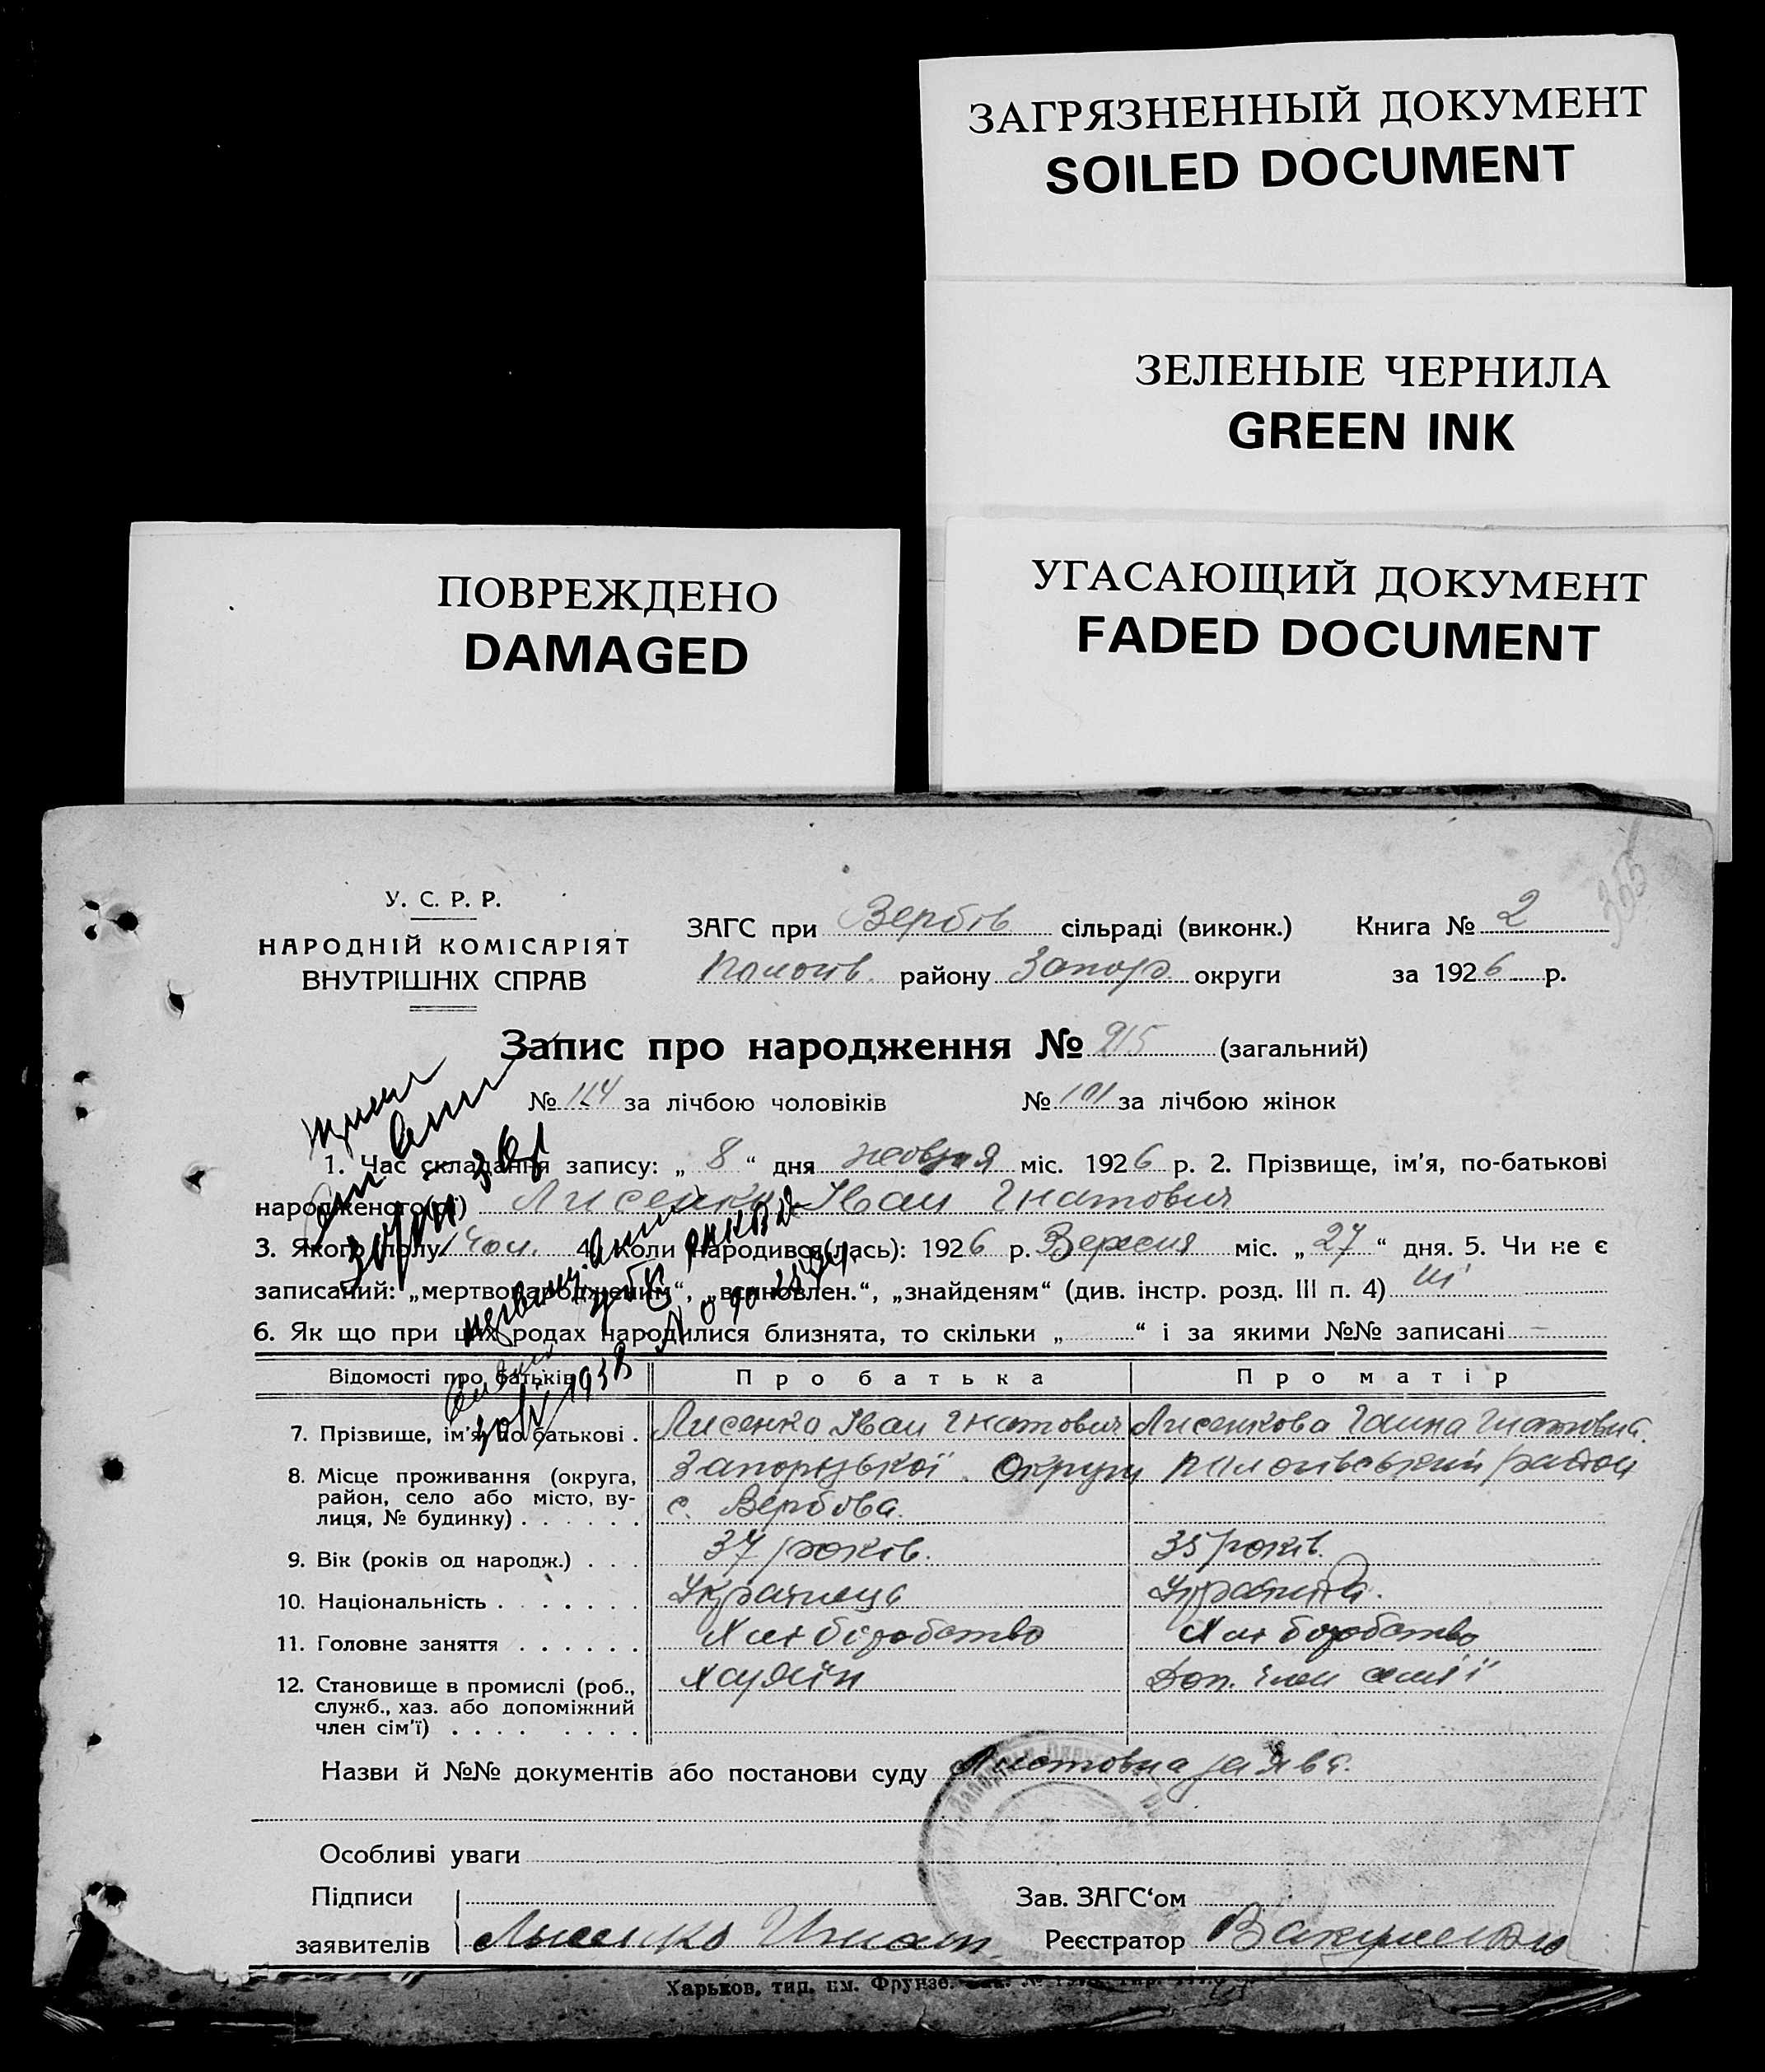 ЗАГРЯЗНЕННЫЙ ДОКУМЕНТ
SOILED DOCUMENT
ЗЕЛЕНЫЕ ЧЕРНИЛА
GREEN INK
УГАСАЮЩИЙ ДОКУМЕНТ
FADED DOCUMENT
ПОВРЕЖДЕНО
DAMAGED
У. С. Р. Р.
НАРОДНІЙ КОМІСАРІЯТ
ВНУТРІШНІХ СПРАВ
ЗАГС при Вербів сільраді (виконк.) Книга № 2
Пологів. району Запор. округи за 1926 р.
Запис про народження № 215 (загальний)
№ 114 за лічбою чоловіків № 101 за лічбою жінок
1. Час складання запису: „ 8 “ дня жовтня міс. 1926 р. 2. Прізвище, ім’я, по-батькові
народженого(ої) Лисенко Іван Гнатович
3. Якого полу Чол. 4. Коли народився(лась): 1926 р. Вересня міс. „ 27 “ дня. 5. Чи не є
записаний: „мертвонародженим“, „всиновлен.“, „знайденям“ (див. інстр. розд. III п. 4) ні
6. Як що при цих родах народилися близнята, то скільки „ “ і за якими №№ записані –
1938
Відомості про батьків Про батька Про матір
7. Прізвище, ім’я, по батькові . Лисенко Іван Гнатович Лисенкова Ганна Гнатовна.
8. Місце проживання (округа, район, село або місто, ву-
лиця, № будинку) . . . . . . Запорізької Округи Пологівський район
с. Вербова.
9. Вік (років од народж.) . . . 37 років. 35 років.
10. Національність . . . . . . . Українець Українка.
11. Головне заняття . . . . . . Хліборобство Хліборобство
12. Становище в промислі (роб., служб., хаз. або допоміжний
член сім’ї) . . . . . . . . Хазяїн Доп. член сім'ї
Назви й №№ документів або постанови суду Листовна заява.
Особливі уваги
Підписи Зав. ЗАГС‘ом
заявителів Лысенко Игнат. Реєстратор
Харьков, тип. им. Фрунзе.